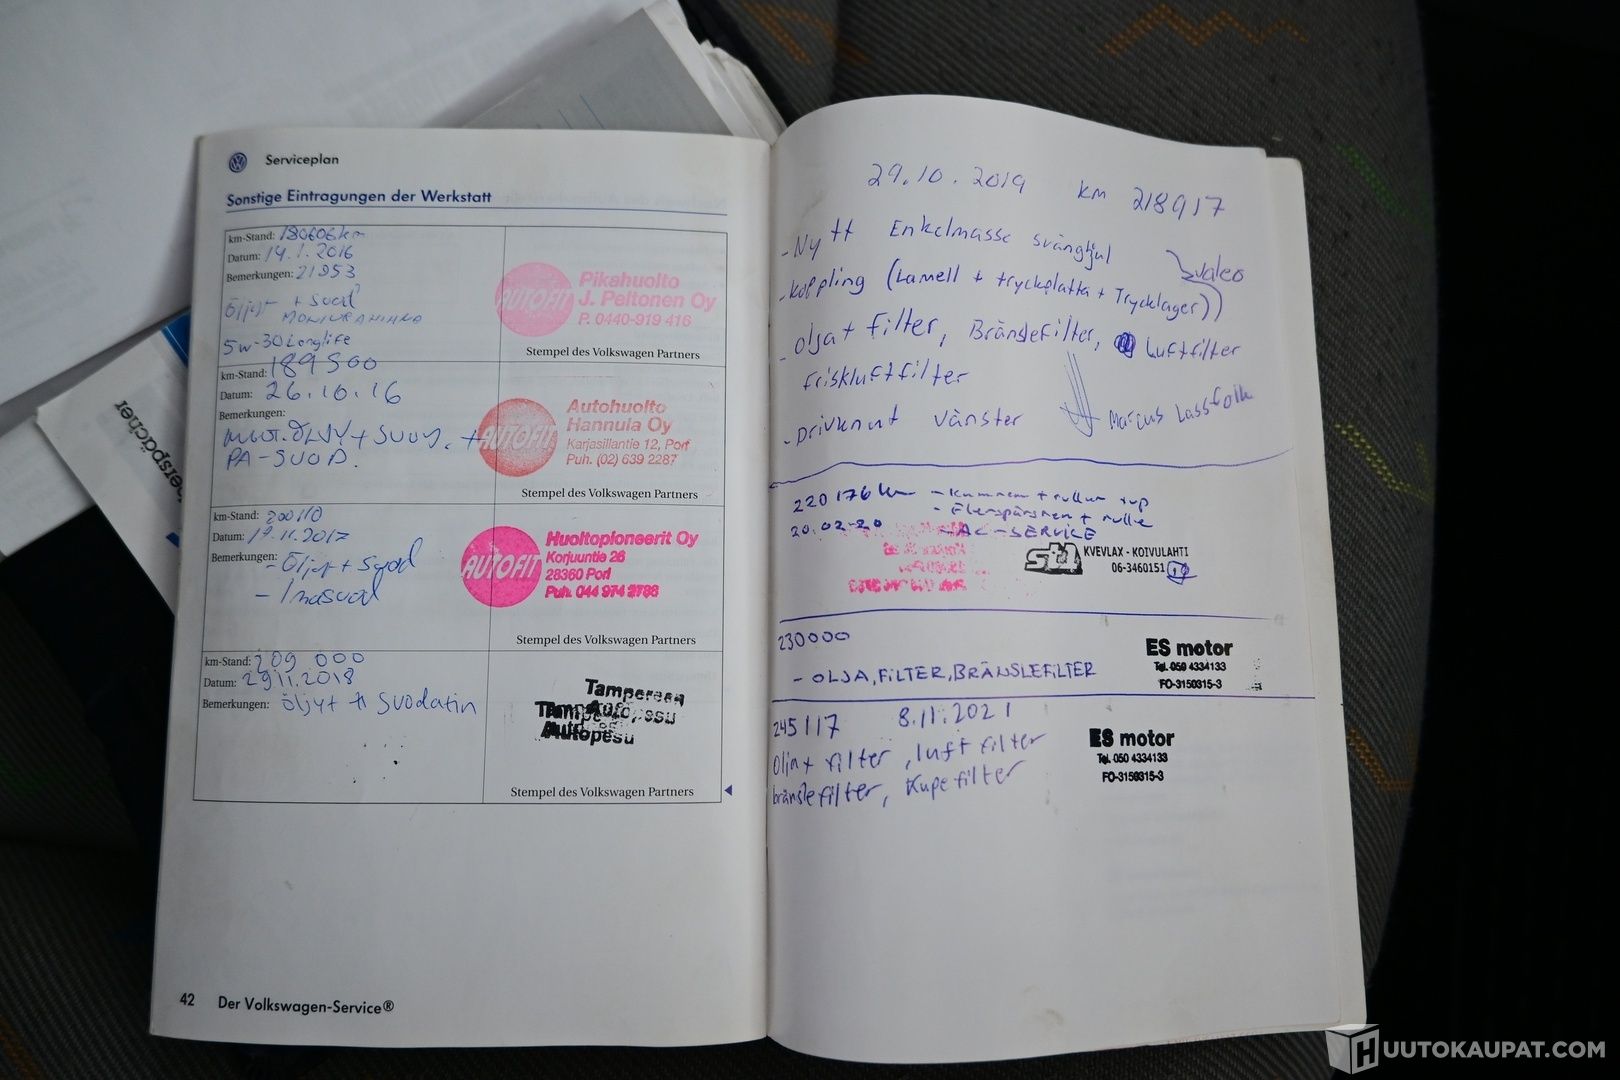 Serviceplan
Sonstige Eintragungen der Werkstatt
km-Stand: 180606 km
Datum: 14.1.2016
Bemerkungen: 21953
Öljyt + suod
5w-30 Longlife
AUTOFIT
Pikahuolto
J. Peltonen Oy
P. 0440-919 416
Stempel des Volkswagen Partners
km-Stand: 189500
Datum: 26.10.16
Bemerkungen:
MOOT. ÖLJY + SUOD. +
PA-SUOD.
AUTOFIT
Autohuolto
Hannula Oy
Karjasillantie 12, Pori
Puh. (02) 639 2287
Stempel des Volkswagen Partners
km-Stand: 200110
Datum: 17.11.2017
Bemerkungen:
- Öljyt + Suod
- Ilmasuod
AUTOFIT
Huoltopioneerit Oy
Korjuuntie 26
28360 Pori
Puh. 044 974 2786
Stempel des Volkswagen Partners
km-Stand: 209 000
Datum: 29.11.2018
Bemerkungen: öljyt + suodatin
Tampereen
Autopesu
Stempel des Volkswagen Partners
42 Der Volkswagen-Service®
29.10.2019 km 218917
- Nytt Enkelmasse svänghjul
- Koppling (Lamell + tryckplatta + Trycklager)
Valeo
- olja + filter, Bränslefilter, Luftfilter
friskluftfilter
- Drivknut vänster
Marcus
220176 km
20.02-20
- AC-SERVICE
KVEVLAX - KOIVULAHTI
06-3460151
230000
- OLJA, FILTER, BRÄNSLEFILTER
ES motor
Tel. 050 4334133
FO-3150315-3
245117 8.11.2021
olja + filter, luft filter
bränslefilter, Kupefilter
ES motor
Tel. 050 4334133
FO-3150315-3
erspächer
HUUTOKAUPAT.COM